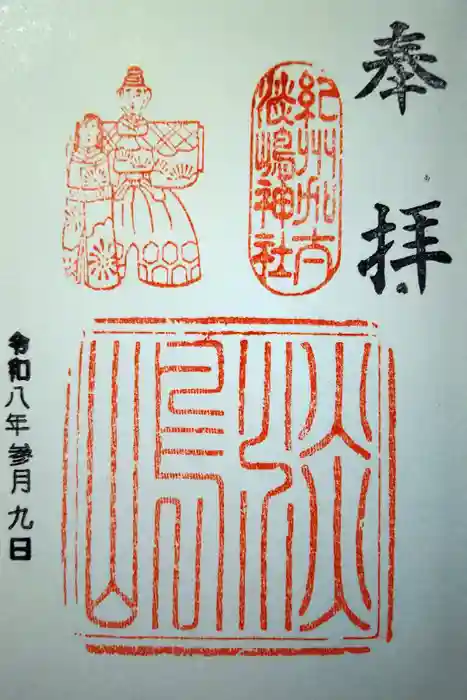 奉拝
紀州加太
淡嶋神社
淡嶋
令和八年参月九日